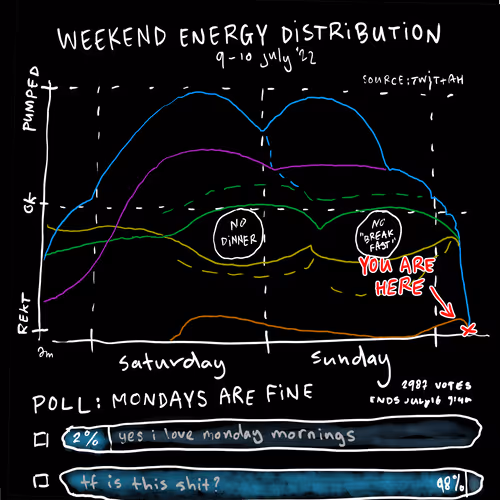 WEEKEND ENERGY DISTRIBUTION
9-10 july '22
SOURCE: TWIT+AH
PUMPED
OK
REKT
NO
DINNER
NO
"BREAK
FAST"
YOU ARE
HERE
saturday
sunday
POLL: MONDAYS ARE FINE
2987 VOTES
ENDS July 16
2% yes i love monday mornings
tf is this shit? 98%